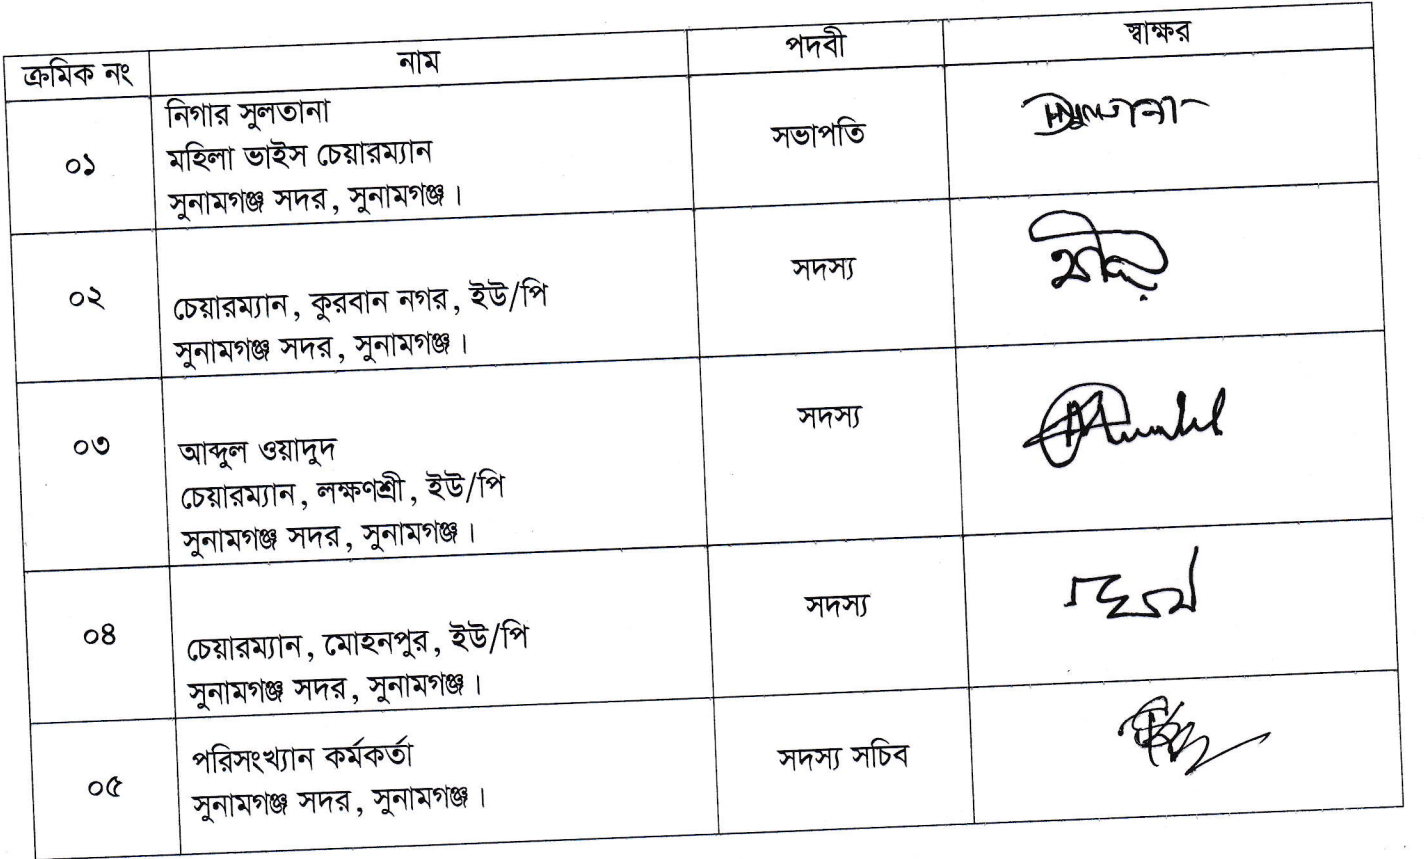 ক্রমিক নং নাম পদবী স্বাক্ষর
০১ নিগার সুলতানা
মহিলা ভাইস চেয়ারম্যান
সুনামগঞ্জ সদর, সুনামগঞ্জ। সভাপতি
০২ চেয়ারম্যান, কুরবান নগর, ইউ/পি
সুনামগঞ্জ সদর, সুনামগঞ্জ। সদস্য
০৩ আব্দুল ওয়াদুদ
চেয়ারম্যান, লক্ষণশ্রী, ইউ/পি
সুনামগঞ্জ সদর, সুনামগঞ্জ। সদস্য
০৪ চেয়ারম্যান, মোহনপুর, ইউ/পি
সুনামগঞ্জ সদর, সুনামগঞ্জ। সদস্য
০৫ পরিসংখ্যান কর্মকর্তা
সুনামগঞ্জ সদর, সুনামগঞ্জ। সদস্য সচিব